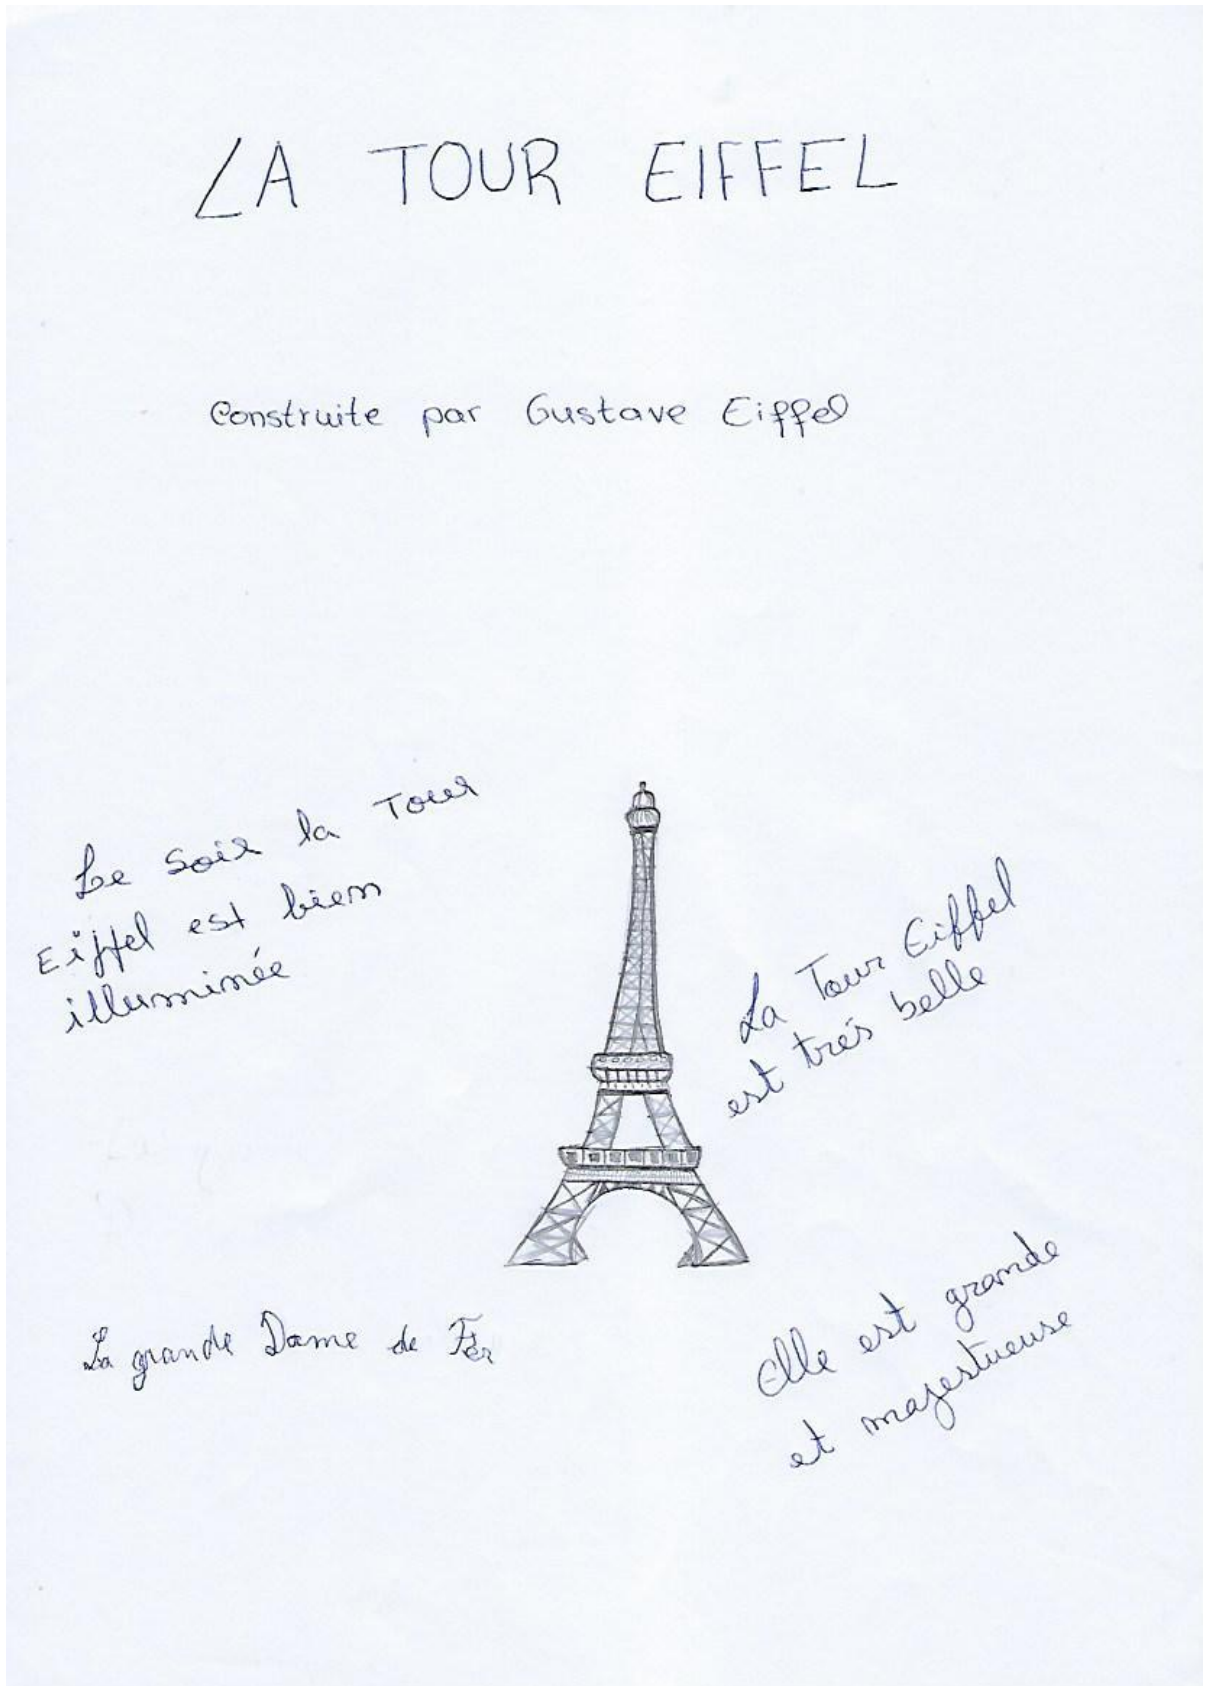 LA TOUR EIFFEL
Construite par Gustave Eiffel
Le soir la Tour
Eiffel est bien
illuminée
La Tour Eiffel
est trés belle
La grande Dame de Fer
Elle est grande
et majestueuse